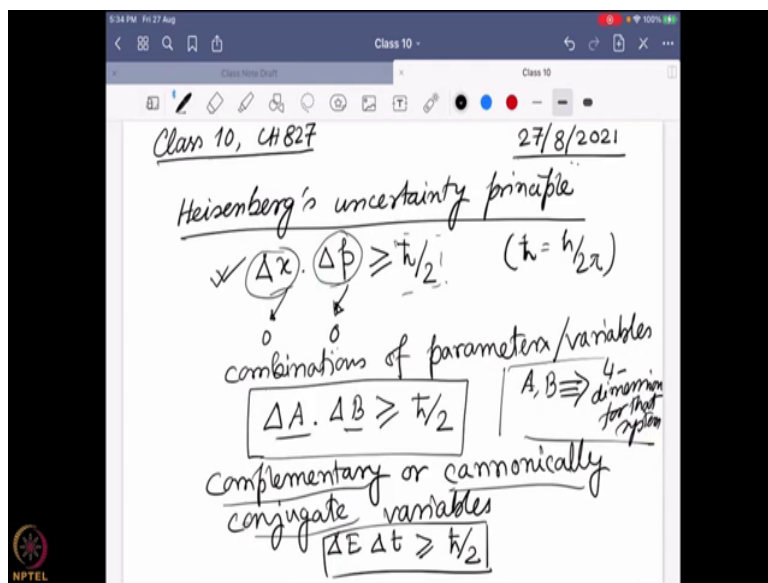 5:34 PM Fri 27 Aug
100%
Class 10
Class Note Draft
Class 10
Class 10, CH827 27/8/2021
Heisenberg's uncertainty principle
Δx . Δp ≥ ħ/2 (ħ = h/2π)
0 0
combinations of parameters/variables
ΔA . ΔB ≥ ħ/2
A, B ⇒ 4-
dimension
for that
system
complementary or cannonically
conjugate variables
ΔE Δt ≥ ħ/2
NPTEL